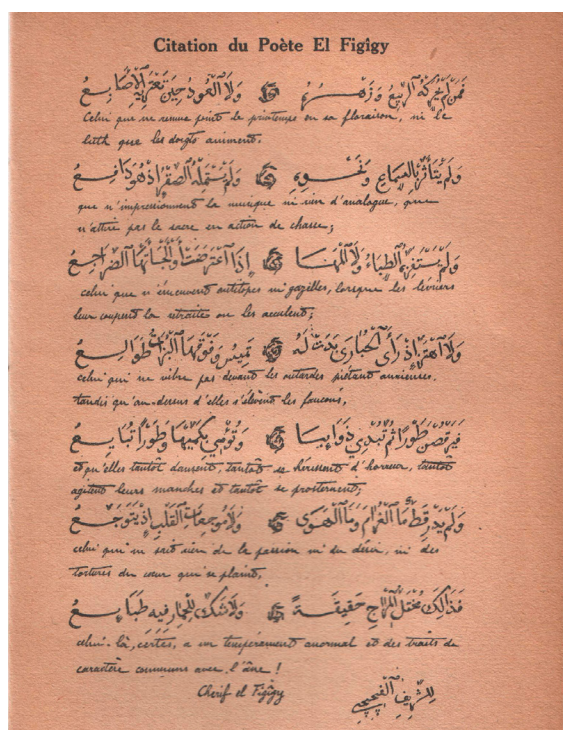 Citation du Poète El Figîgy
فمن لم يحركه الربيع وزهره ولا العود حين تعتريه الأصابع
Celui que ne remue point le printemps en sa floraison, ni le
luth que les doigts animent,
ولم يتأثر بالسماع ونحوه ولم يستمله الصقر إذ هو دافع
que n'impressionnent la musique ni rien d'analogue, que
n'attire pas le sacre en action de chasse;
ولم تستفزه الظباء ولا المها إذا اعترضت
celui que n'émeuvent antilopes ni gazelles, lorsque les lévriers
leur coupent la retraite ou les acculent;
ولا اهتز إذ رأى الحبارى بدت له تميس وفوقها البزاة طوالع
celui qui ne vibre pas devant les outardes piétant anxieuses,
tandis qu'au-dessus d'elles s'élèvent les faucons,
فيرقصن طورا ثم تبدي ذوائبا وتومي بكميها وطورا تبايع
et qu'elles tantôt dansent, tantôt se hérissent d'horreur, tantôt
agitent leurs manches et tantôt se prosternent;
ولم يدر قط ما الغرام وما الهوى ولا موجعات القلب إذ يتوجع
celui qui ne sait rien de la passion ni du désir, ni des
tortures du cœur qui se plaint,
فذالك مختل المزاج حقيقة ولا شك للحمار فيه طبايع
celui-là, certes, a un tempérament anormal et des traits de
caractère communs avec l'âne !
Cherif el Figîgy
للشريف الفجيجي